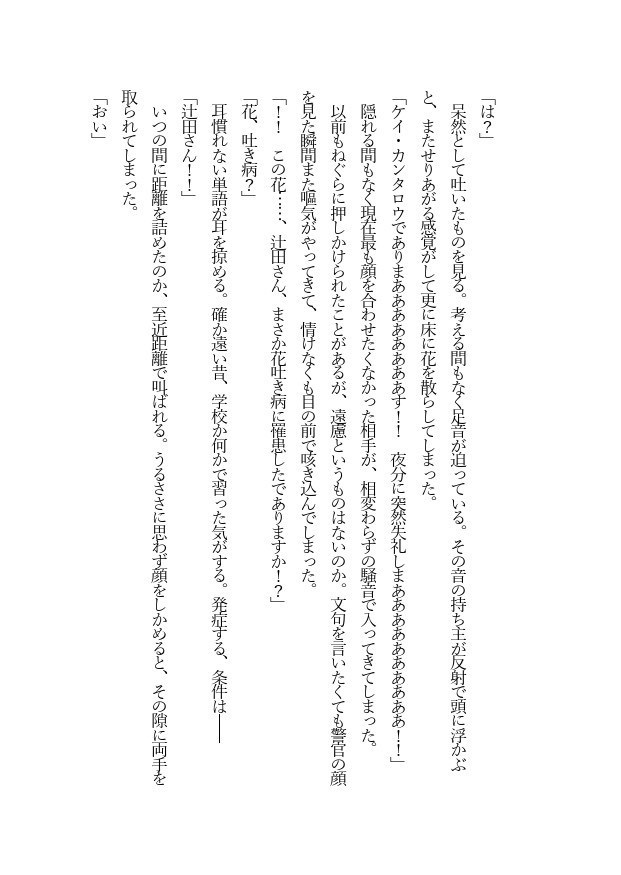 「は？」
　呆然として吐いたものを見る。考える間もなく足音が迫っている。その音の持ち主が反射で頭に浮かぶ
と、またせりあがる感覚がして更に床に花を散らしてしまった。
「ケイ・カンタロウでありまあああああああああす！！　夜分に突然失礼しまああああああああああ！！」
　隠れる間もなく現在最も顔を合わせたくなかった相手が、相変わらずの騒音で入ってきてしまった。
　以前もねぐらに押しかけられたことがあるが、遠慮というものはないのか。文句を言いたくても警官の顔
を見た瞬間また嘔気がやってきて、情けなくも目の前で咳き込んでしまった。
「！！　この花……、辻田さん、まさか花吐き病に罹患したでありますか！？」
「花、吐き病？」
　耳慣れない単語が耳を掠める。確か遠い昔、学校か何かで習った気がする。発症する、条件は――
「辻田さん！！」
　いつの間に距離を詰めたのか、至近距離で叫ばれる。うるささに思わず顔をしかめると、その隙に両手を
取られてしまった。
「おい」